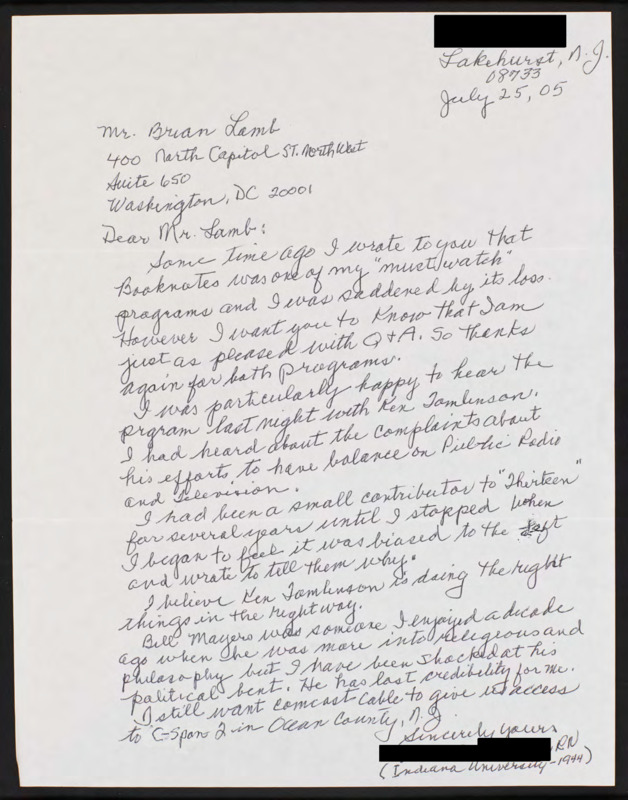 Lakehurst, N.J.
08733
July 25, 05
Mr. Brian Lamb
400 North Capitol St. North West
Suite 650
Washington, DC 20001
Dear Mr. Lamb:
Some time ago I wrote to you that
Booknotes was one of my "must watch"
programs and I was saddened by its loss.
However I want you to know that I am
just as pleased with Q+A. So thanks
again for both programs.
I was particularly happy to hear the
prgram last night with Ken Tomlinson.
I had heard about the complaints about
his efforts to have balance on Public Radio
and Television.
I had been a small contributor to "Thirteen"
for several years until I stopped when
I began to feel it was biased to the left
and wrote to tell them why.
I believe Ken Tomlinson is doing the right
things in the right way.
Bill Moyers was someone I enjoyed a decade
ago when he was more into religeous and
philosophy but I have been shocked at his
political bent. He has lost credibility for me.
I still want comcast cable to give us access
to C-Span 2 in Ocean County, N.J.
Sincerely yours
RN
(Indiana University-1944)